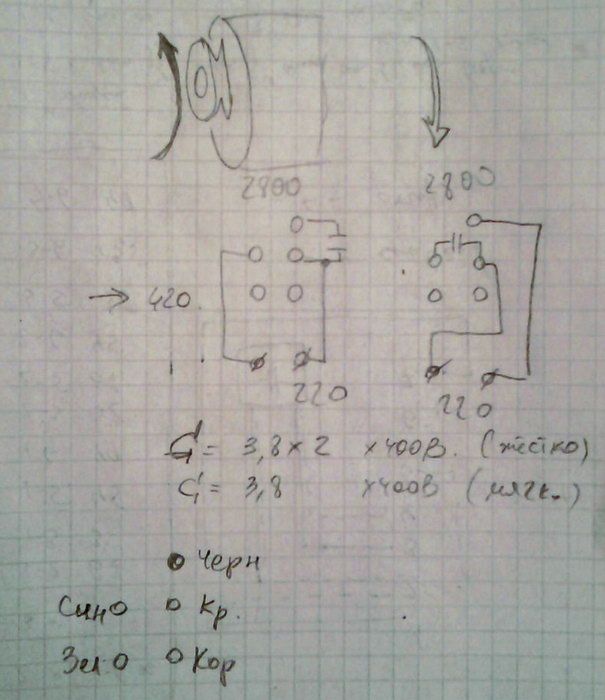 2800 2800
→ 420.
220 220
C = 3,8 × 2 ×400В. (жёстко)
C = 3,8 ×400В (мягк.)
Черн
Син Кр.
Зел Кор